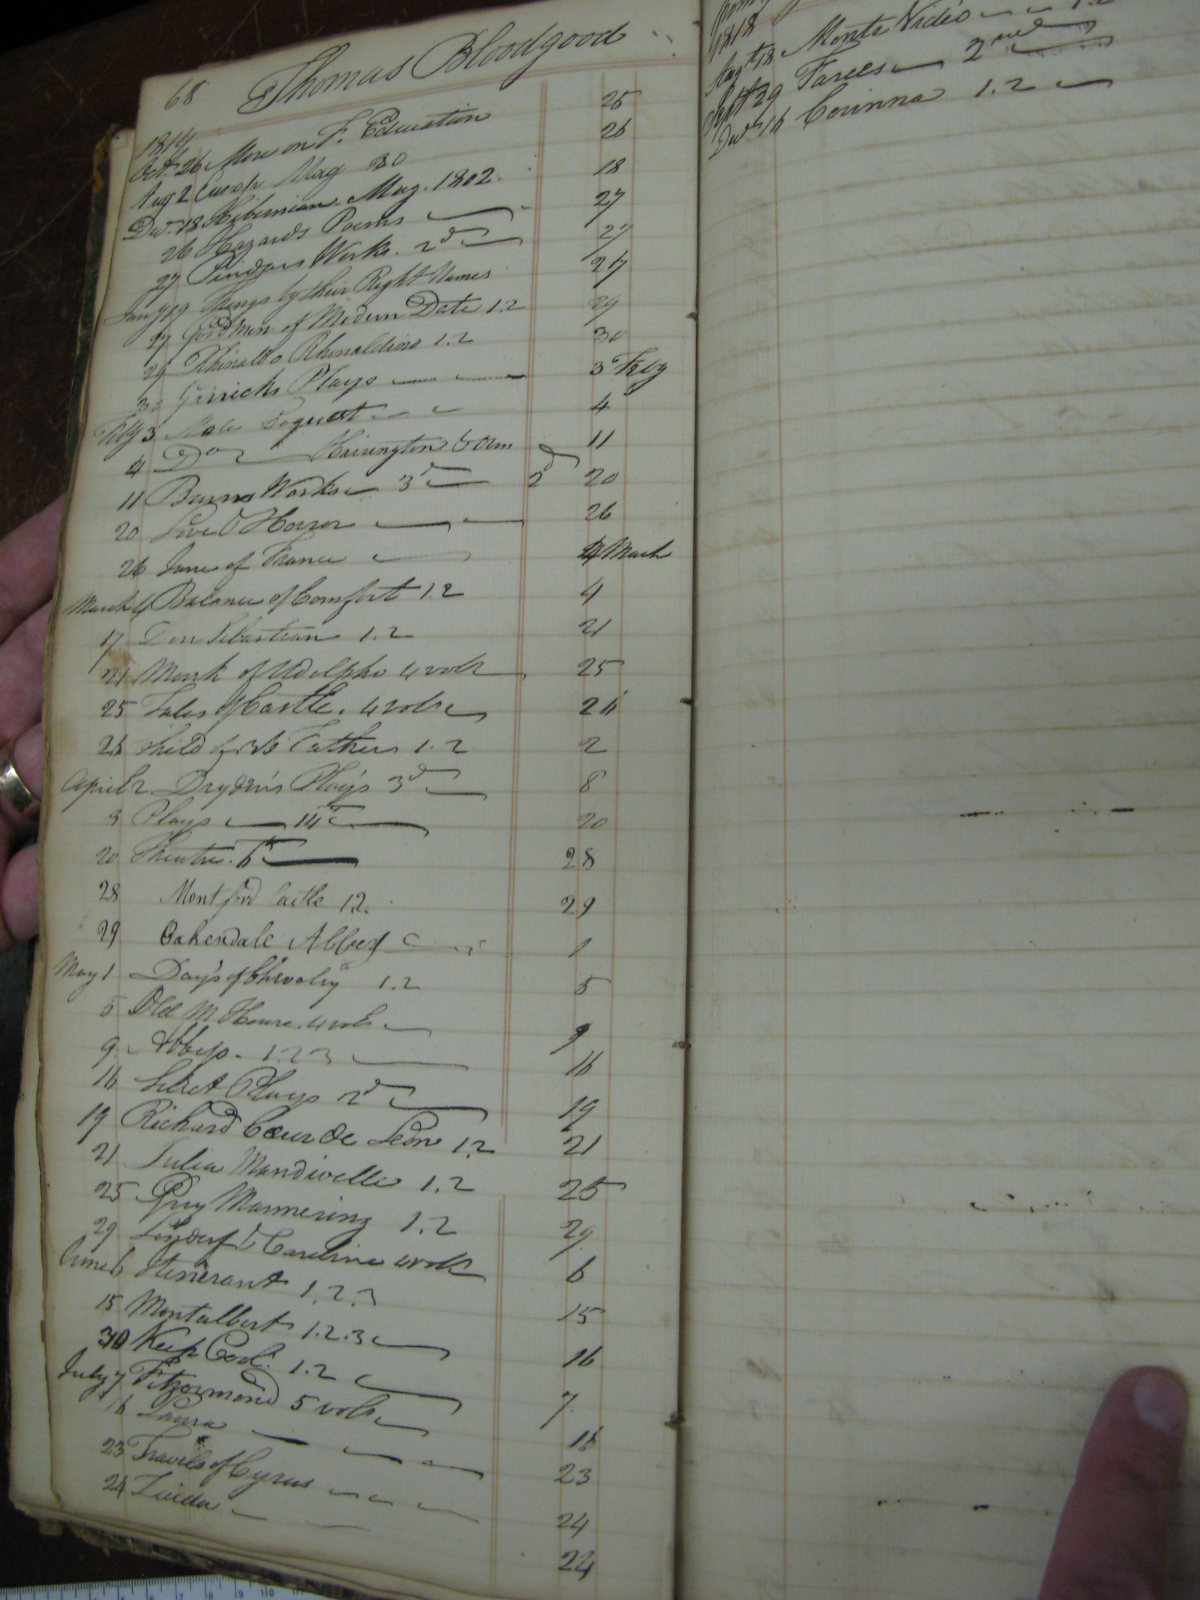 68 Thomas Bloodgood
1814
Oct. 26 More on F. Education 25
Aug 2 Mag 30 26
Dec. 18 Hibernian Mag. 1802. 18
26 Hazards Poems 27
27 Pindars Works. 2d 27
Jany 19 Things by their Right Names 27
27 Good Men of Modern Date 1.2 29
29 Rhinaldo Rhinaldino 1.2 30
30 Garricks Plays 3 Feby
Feby 3 Male Coquett 4
4 Do Harrington & Orm 11
11 Burns Works 3d 2d 20
20 Love & Horror 26
26 Jane of France 4 March
March 4 Balance of Comfort 1.2 4
17 Don Sebastian 1.2 21
21 Monk of Udolpho 4 vols 25
25 Tales of Castle. 4 vols 26
26 Child of 36 Fathers 1.2 2
April 2 Dryden's Plays 3d 8
8 Plays 14th 20
20 Theatre. 6th 28
28 Montford Castle 1.2. 29
29 Oakendale Abbey 1
May 1 Days of Chivalry 1.2 5
5 Old M House 4 vols 9
9 Abbess. 1.2.3 16
16 Select Plays 2d 19
19 Richard Coeur De Leon 1.2 21
21 Julia Mandivelle 1.2 25
25 Guy Mannering 1.2 29
29 & Caroline 4 vols 6
June 6 Itinerant 1.2.3 15
15 Montalbert 1.2.3 16
30 Keep Cool. 1.2 7
July 7 Fitzormond 5 vols 16
16 Laura 23
23 Travels of Cyrus 24
24 24
1818
Monte Video 1.2
Sept 29 2nd
Dec 16 Corinna 1.2